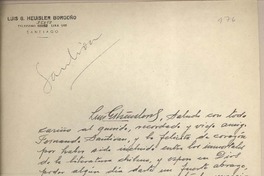 LUIS G. HEUISLER BORGOÑO
SANTIAGO
Sandivan
Luis G. Heuisler B, Saluda con todo
cariño al querido, recordado y viejo amigo
Fernando Sandivan, y lo felicita de corazón
por haber sido incluido entre los inmortales
de la literatura chilena, y espera en Dios
poder algún día darle un fuerte abrazo